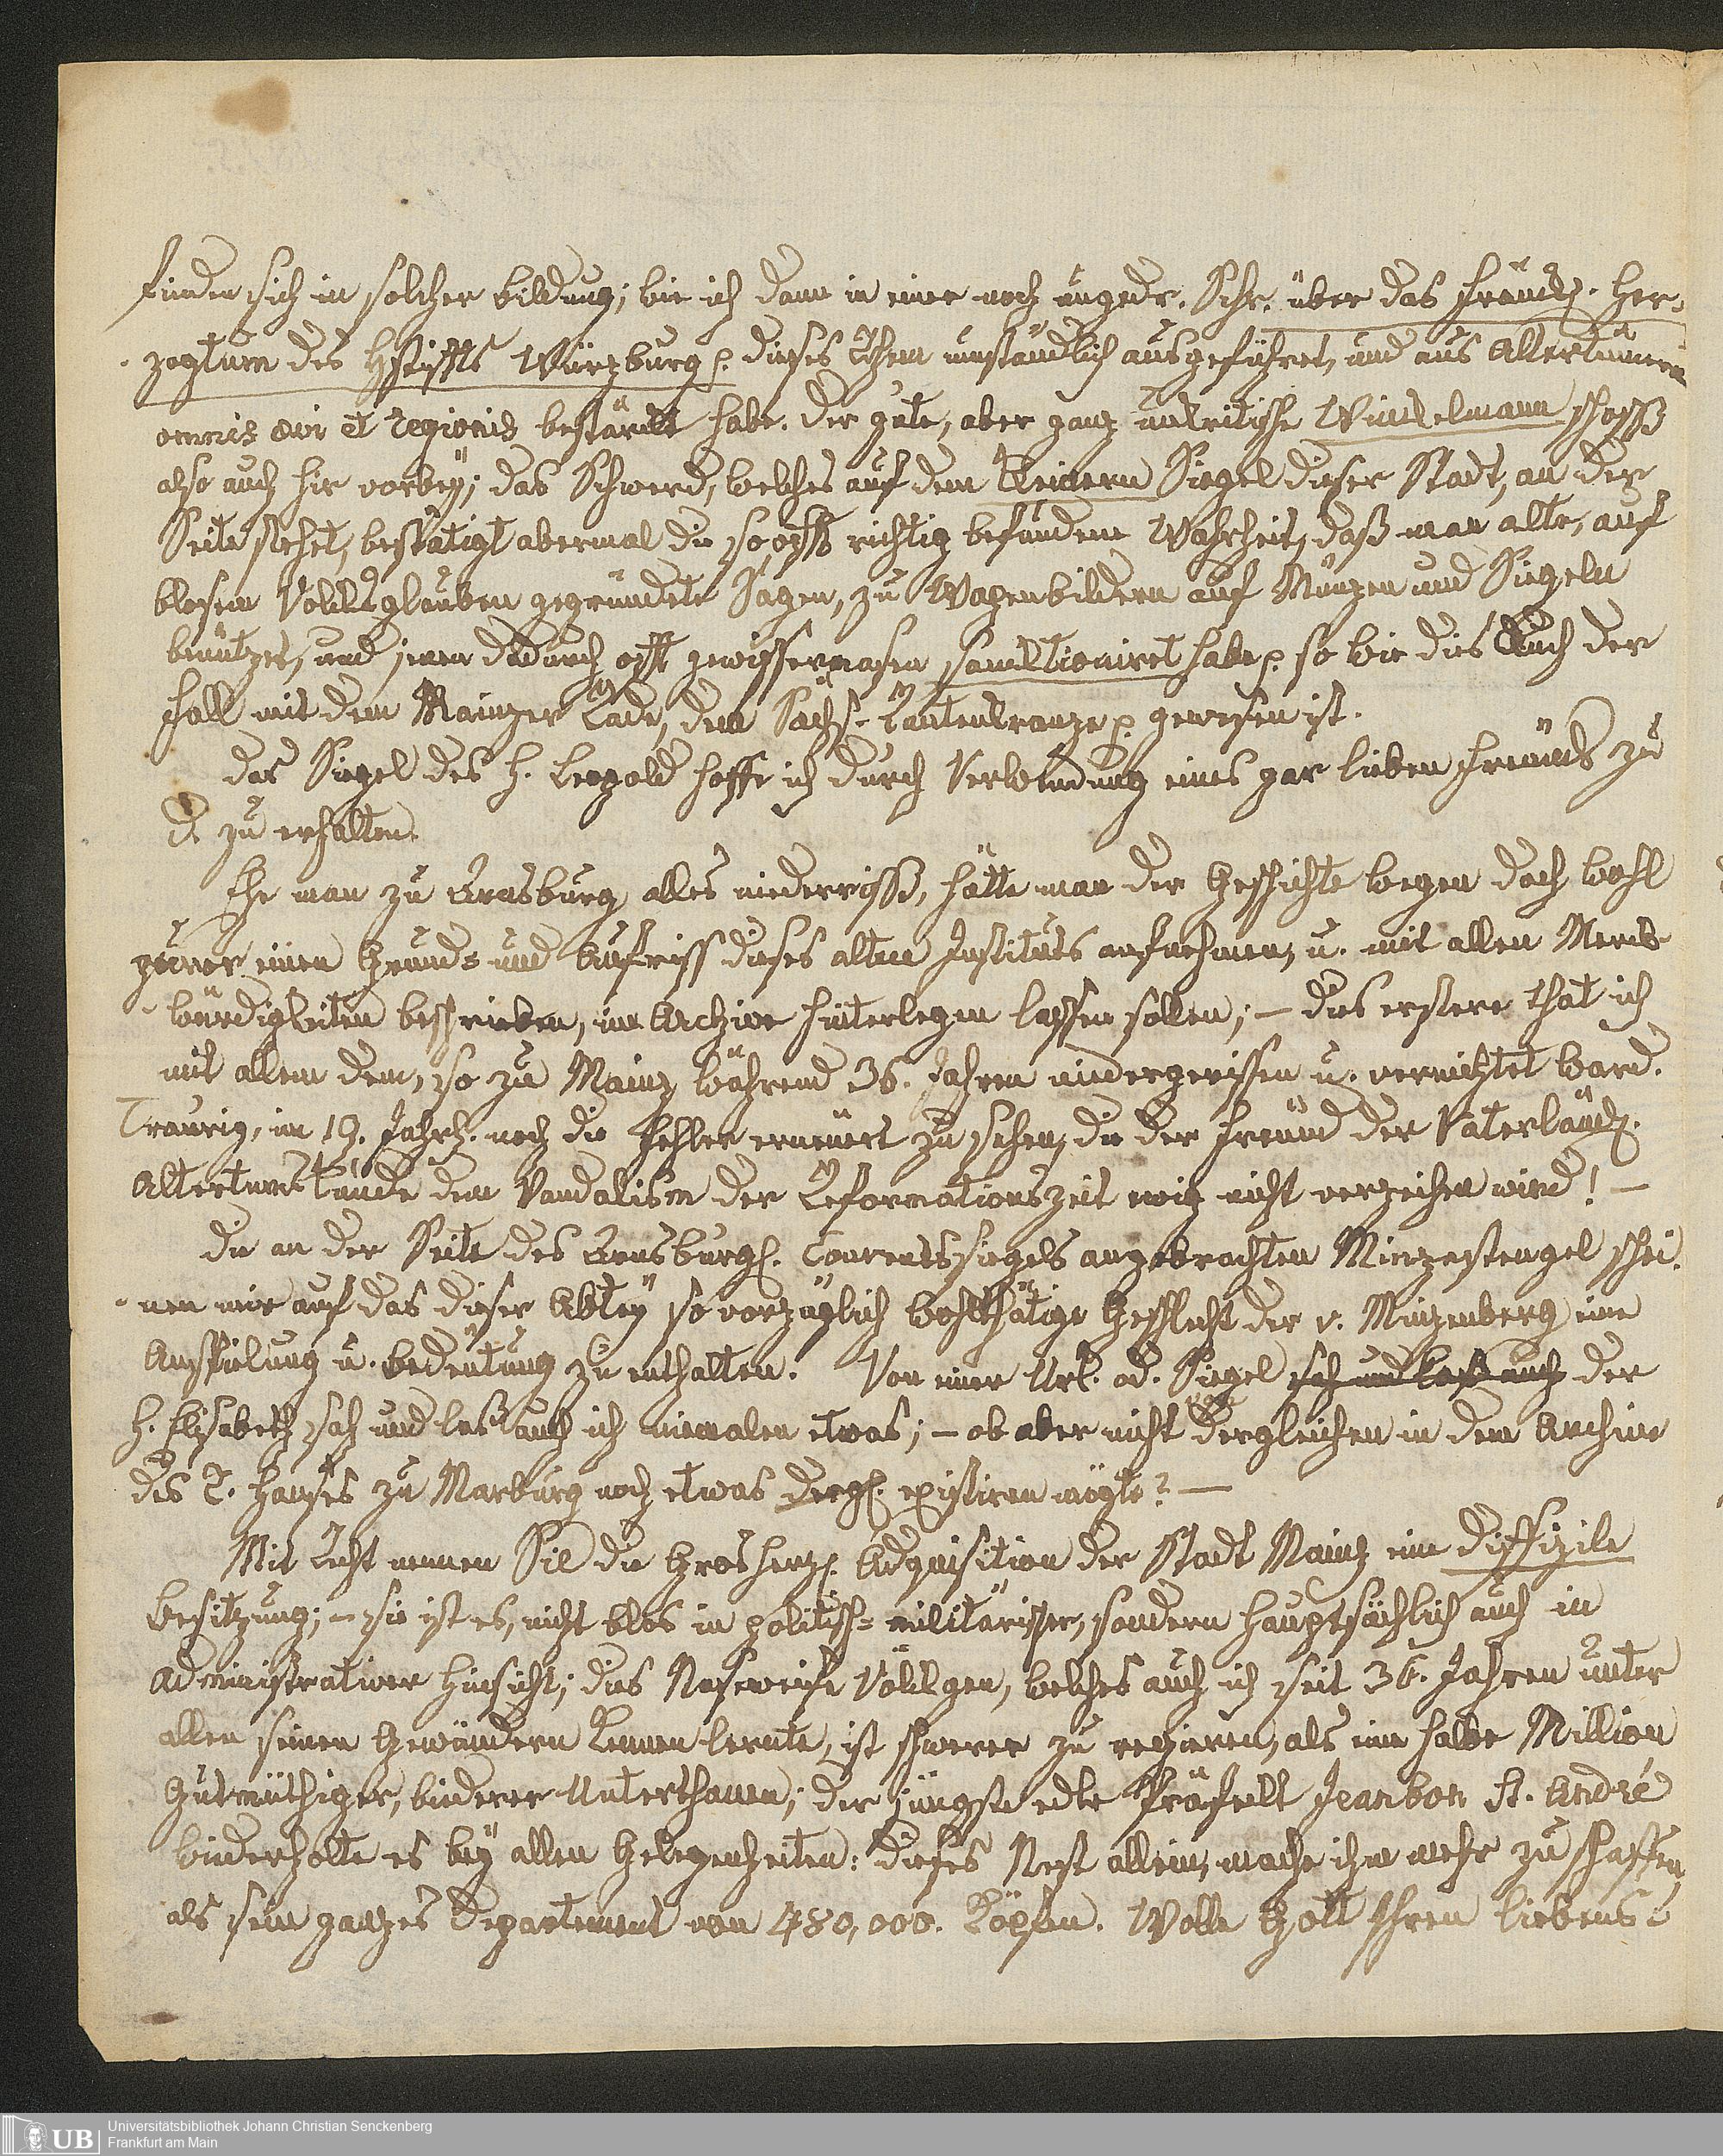 finden sich in solcher bildung; wie ich dann in einer noch ungedr. Schr. über das fränck. Her-
zogtum des Hstiffts Würzburg p. dieses Thema umständlich ausgeführet, und aus Altertümern
omnis aevi et regionis bestärkt habe. der gute, aber ganz unkritische Winkelmann schoss
also auch hir vorbey; das Schwerd, welches auf dem kleinern Siegel dieser Stadt, an der
Seite stehet, bestätigt abermal die so offt richtig befundene Wahrheit, daß man alte, auf
blosem Volksglauben gegründete Sagen, zu Wapenbildern auf Münzen und Siegeln
benützet, und jenen dadurch offt gewissermasen sanktioniret habe p. so wie dies auch der
Fall mit dem Mainzer Rade, dem Sächs. Rautenkranze p gewesen ist.
das Siegel des H. Leopold hoffe ich durch Verwendung eines gar lieben Freunds zu
D. zu erhalten.
Ehe man zu Arnsburg alles niederrisse, hätte man der Geschichte wegen doch wohl
zuvor einen Grund- und Aufriss dieses alten Instituts aufnehmen, u. mit allen Merk-
würdigkeiten beschrieben, im Archive hinterlegen lassen sollen; – dies erstere that ich
mit allem dem, so zu Mainz während 36. Jahren niedergerissen u. vernichtet ward.
Traurig, im 19. Jahrh. noch die Fehler erneuert zu sehen, die der Freund der Vaterländ.
Altertumskunde dem Vandalism der Reformationszeit ewig nicht verzeihen wird! –
die an der Seite des Arnsburg. Conventssiegels angebrachten Minzestengel schei-
nen mir auf das dieser Abtey so vorzüglich wohlthätige Geschlecht der v. Minzenberg eine
Anspielung u. bedeutung zu enthalten. Von einer Urk. od. Siegel sah und las auch der
H. Elisabeth sah und las auch ich niemalen etwas; – ob aber nicht dergleichen in dem Archive
des T. Hauses zu Marburg noch etwas dergl. existiren mögte? –
Mit Recht nennen Sie die Grosherz. Adquisition der Stadt Mainz eine diffizile
besitzung; – sie ist es, nicht blos in politisch-militärischer, sondern hauptsächlich auch in
administrativer hinsicht; dies Naseweise Völkgen, welches auch ich seit 36. Jahren unter
allen seinen Gewändern kennen lernte, ist schwerer zu regieren, als eine halbe Million
Gutmüthiger, biederer Unterthanen; der jüngste edle Präfekt Jeanbon St. André
wiederholte es bey allen Gelegenheiten: dieses Nest allein, mache ihm mehr zu schaffen,
als sein ganzes Departement von 480,000. Köpfen. Wolle Gott Ihren liebens-
Universitätsbibliothek Johann Christian Senckenberg
Frankfurt am Main
UB